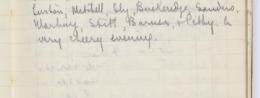 Luxton, Mitchell, Ely, Buckeridge, Sanders,
Warling, Stitt, Barnes, & Cathy. A
very cheery evening.